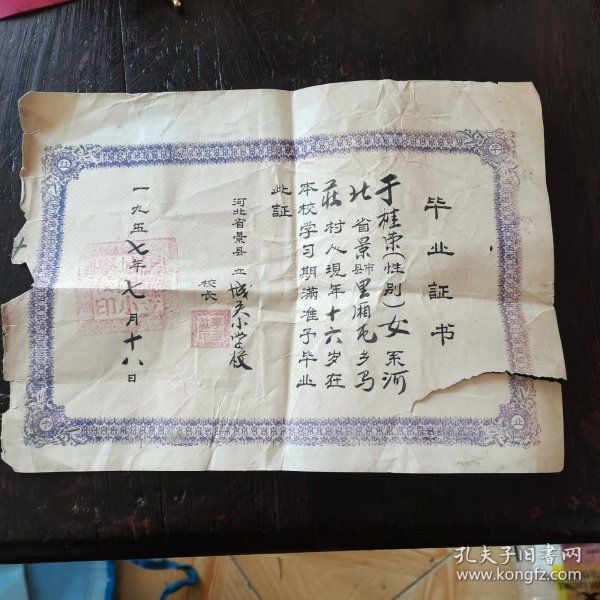 毕业证书
于桂荣(性别)女系河
北省景县市里厢屯乡马
莊村人现年十六岁在
本校学习期滿准予毕业
此证
河北省景县立城关小学校
校长
一九五七年七月十八日
孔夫子旧书网
www.kongfz.com